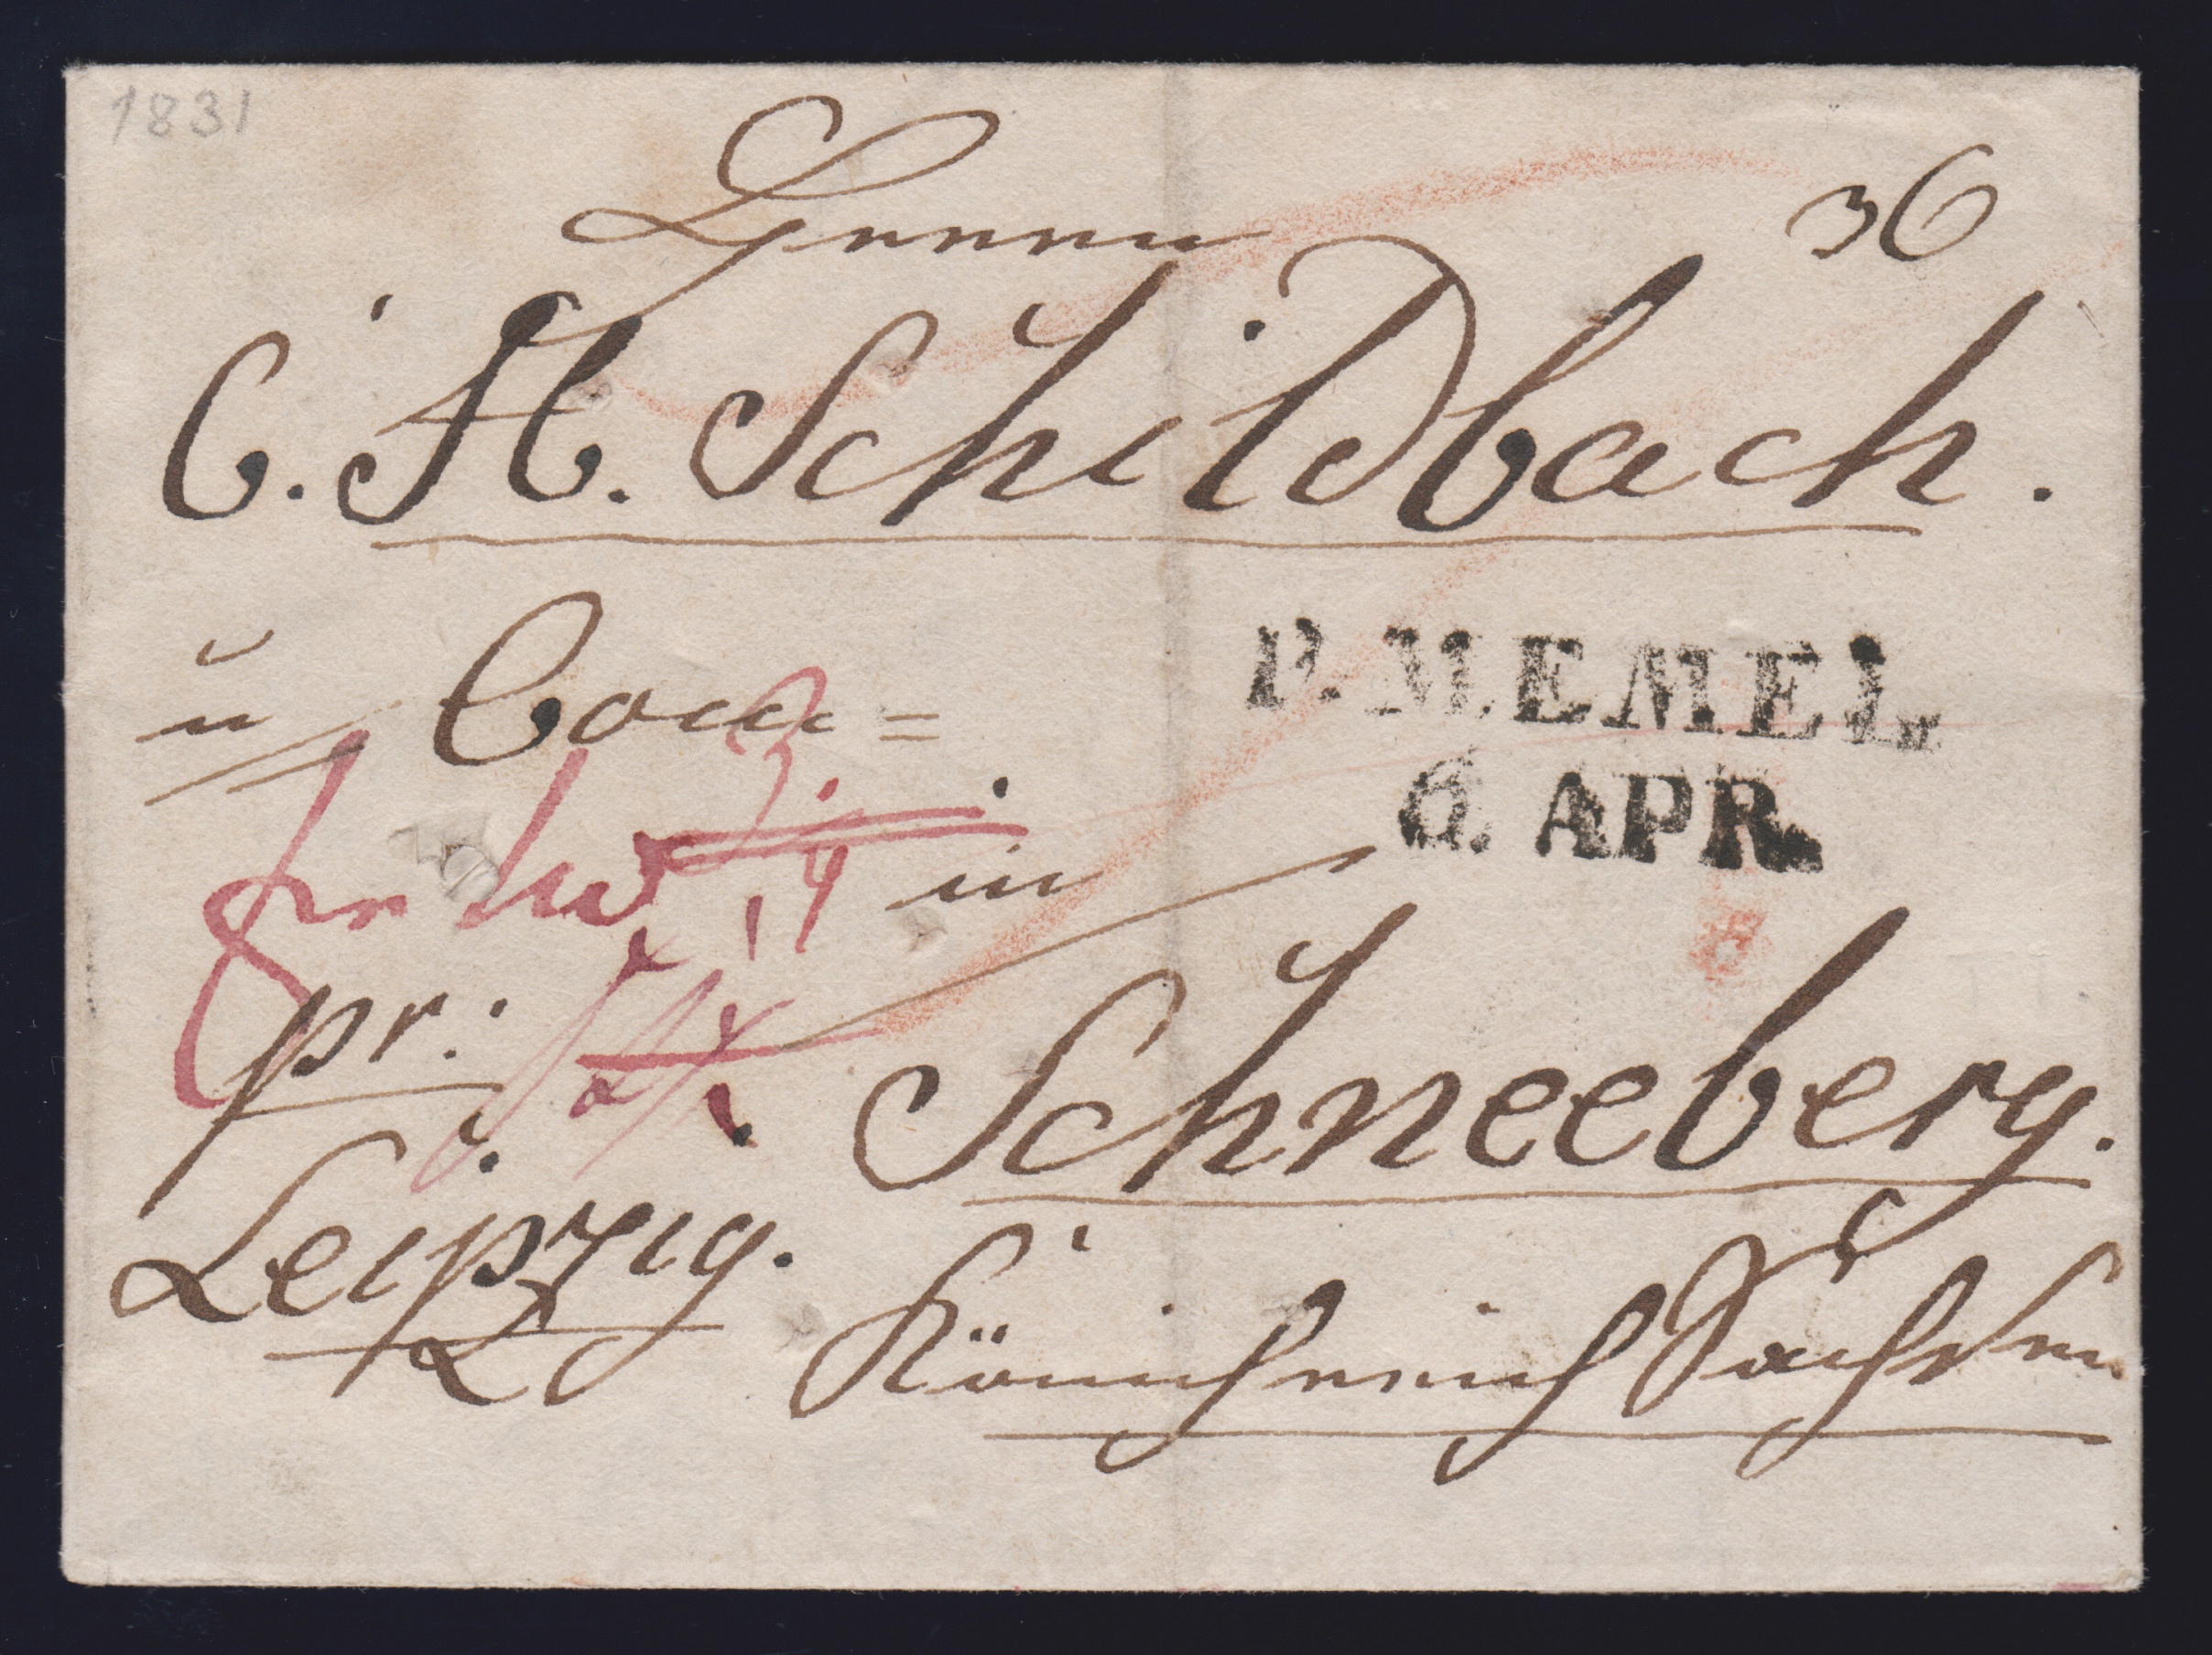 1831
Herrn
36
C. H. Schildbach.
u Com=
P. MEMEL
6. APR.
in
pr:
Schneeberg.
Leipzig.
Königreich Sachsen